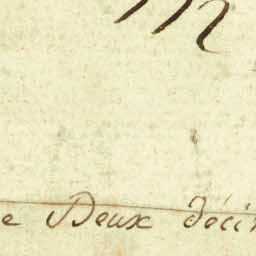 m
e Deux déci